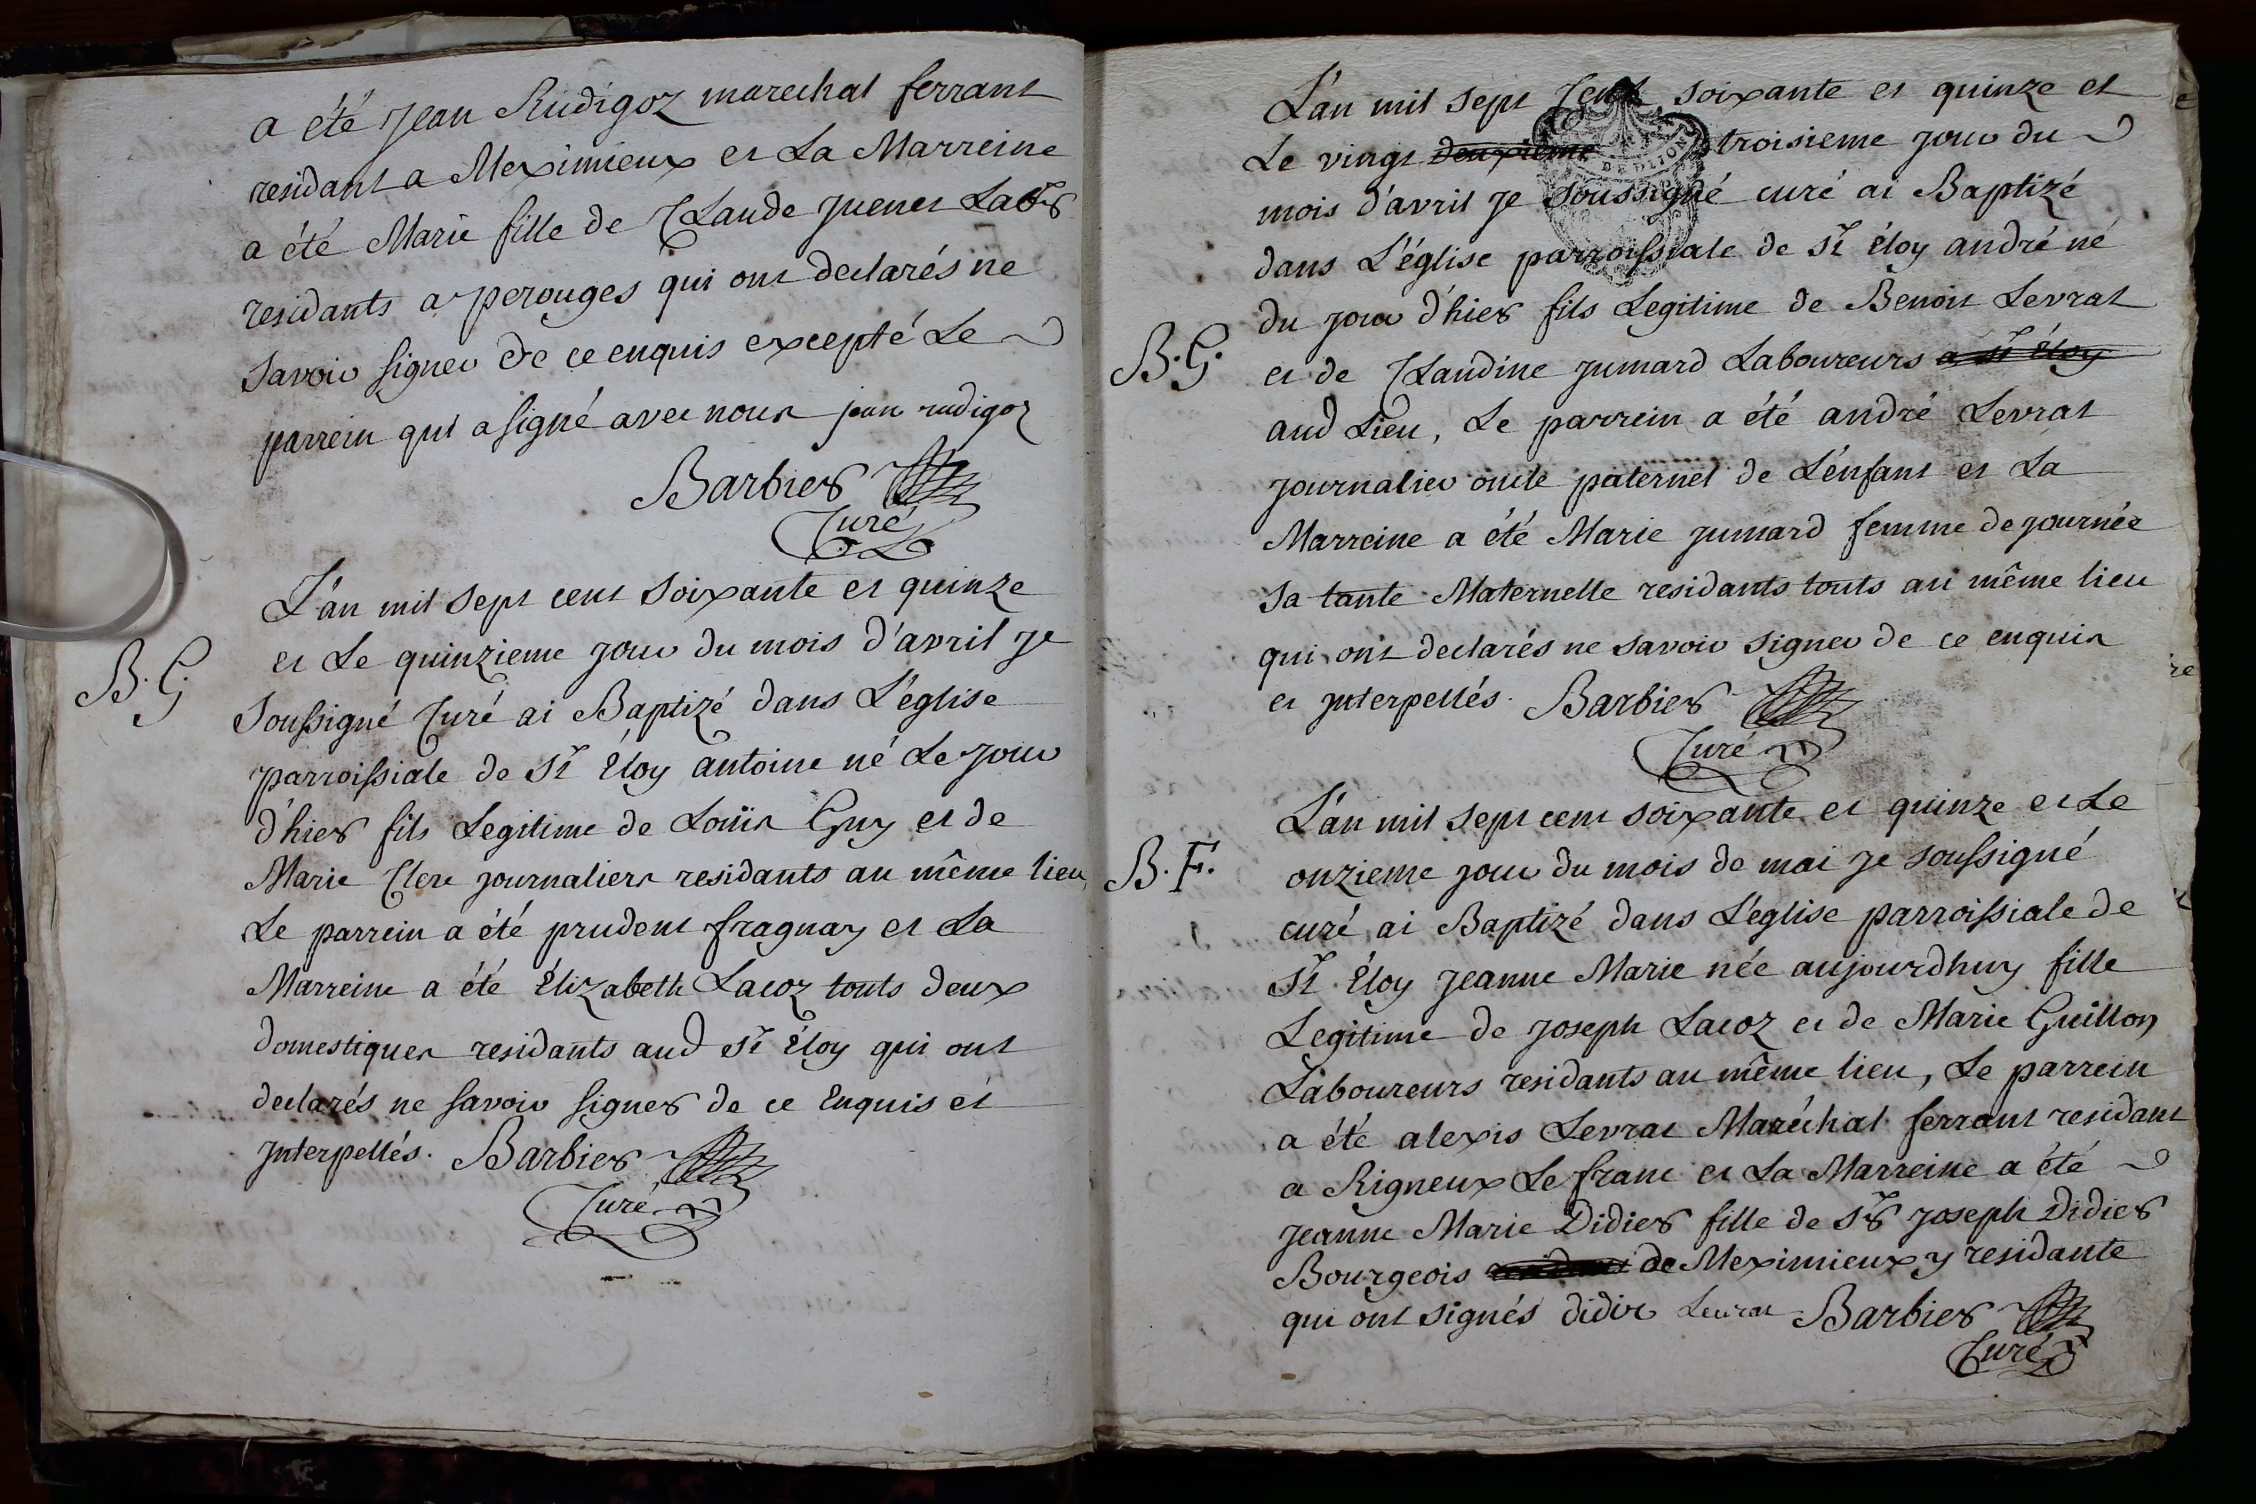 a été Jean Rudigoz marechal ferrant
residant a Meximieux et La Marreine
a été Marie fille de Claude juenet Labr
residants a perouges qui ont declarés ne
Savoir signer de ce enquis excepté Le
parrein qui a signé avec nous jean rudigoz
Barbier
Curé
L'an mil sept cent soixante et quinze
B. G.
et Le quinzieme jour du mois d'avril je
Soussigné Curé ai Baptizé dans L'église
parroissiale de St Éloy antoine né Le jour
d'hier fils Legitime de Loüis Guy et de
Marie Clere journaliers residants au même lieu,
Le parrein a été prudent fragnay et La
Marreine a été Élizabeth Lacoz touts deux
domestiques residants aud St Éloy qui ont
declarés ne savoir signer de ce Enquis et
jnterpellés. Barbier
Curé
L'an mil sept Cent soixante et quinze et
Le vingt deuxieme troisieme jour du
mois d'avril je soussigné curé ai Baptizé
dans L'église parroissiale de St Éloy andré né
du jour d'hier fils Legitime de Benoit Levrat
B. G.
et de Claudine jumard Laboureurs a St Éloy
aud Lieu, Le parrein a été andré Levrat
journalier oncle paternel de L'enfant et La
Marreine a été Marie jumard femme de journée
sa tante Maternelle residants touts au même lieu
qui ont declarés ne savoir signer de ce enquis
et jnterpellés. Barbier
Curé
L'an mil sept cent soixante et quinze et Le
B. F.
onzieme jour du mois de mai je soussigné
curé ai Baptizé dans L'église parroissiale de
St Éloy jeanne Marie née aujourdhuy fille
Legitime de joseph Lacoz et de Marie Guillon
Laboureurs residants au même lieu, Le parrein
a été alexis Levrat Maréchal ferrant residant
a Rigneux Le franc et La Marreine a été
jeanne Marie Didier fille de Sr joseph Didier
Bourgeois de Meximieux y residante
qui ont signés didier Levrat Barbier
Curé